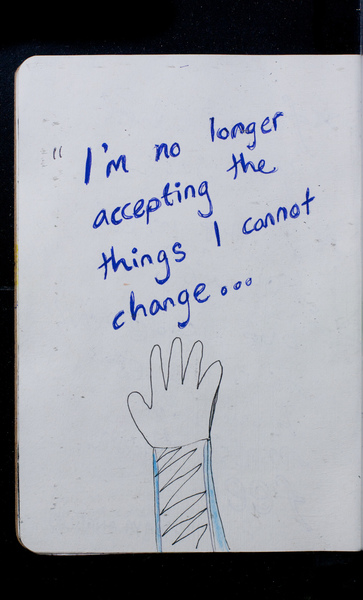 "I'm no longer
accepting the
things I cannot
change...